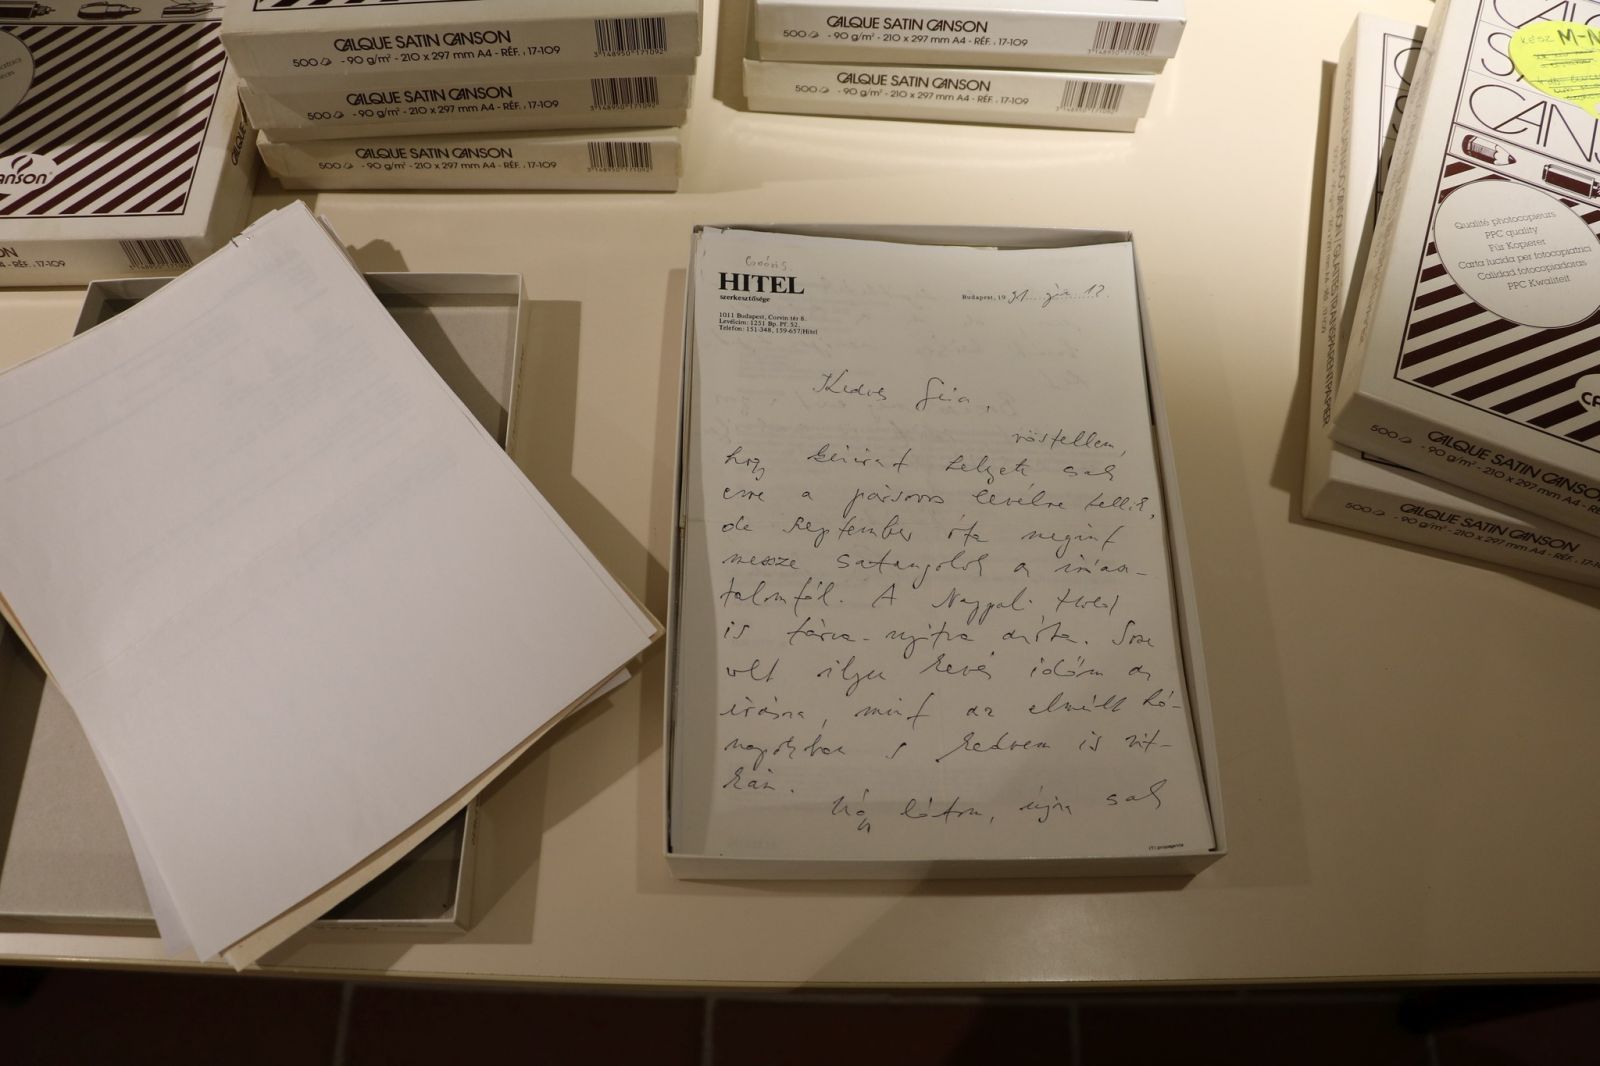 CALQUE SATIN CANSON
500 - 90 g/m² - 210 x 297 mm A4 - RÉF. : 17-109
3 148950 171092
CALQUE SATIN CANSON
500 - 90 g/m² - 210 x 297 mm A4 - RÉF. : 17-109
3 148950 171092
CALQUE SATIN CANSON
500 - 90 g/m² - 210 x 297 mm A4 - RÉF. : 17-109
3 148950 171092
CALQUE SATIN CANSON
500 - 90 g/m² - 210 x 297 mm A4 - RÉF. : 17-109
3 148950 171092
CALQUE SATIN CANSON
500 - 90 g/m² - 210 x 297 mm A4 - RÉF. : 17-109
3 148950 171092
HITEL
szerkesztősége
1011 Budapest, Corvin tér 8.
Levélcím: 1251 Bp. Pf. 52.
Telefon: 151-348, 159-657/Hitel
Budapest, 19 91. 12
Kedves Géza,
röstellem,
hogy kéziratok helyett csak
erre a pársoros levélre tellik,
de szeptember óta megint
messze csatangolok az íróasz-
talomtól. A Nappali Hold
is tárva-nyitva azóta. Sose
volt ilyen kevés időm az
írásra, mint az elmúlt hó-
napokban s kedvem is rit-
kán.
Úgy látom, újra csak
KÉSZ M-N
CANSON
Qualité photocopieurs
PPC quality
Für Kopierer
Carta lucida per fotocopiatrici
Calidad fotocopiadoras
PPC Kwaliteit
500 CALQUE SATIN CANSON
- 90 g/m² - 210 x 297 mm A4 - RÉF. : 17-109
500 CALQUE SATIN CANSON
- 90 g/m² - 210 x 297 mm A4 - RÉF. : 17-1